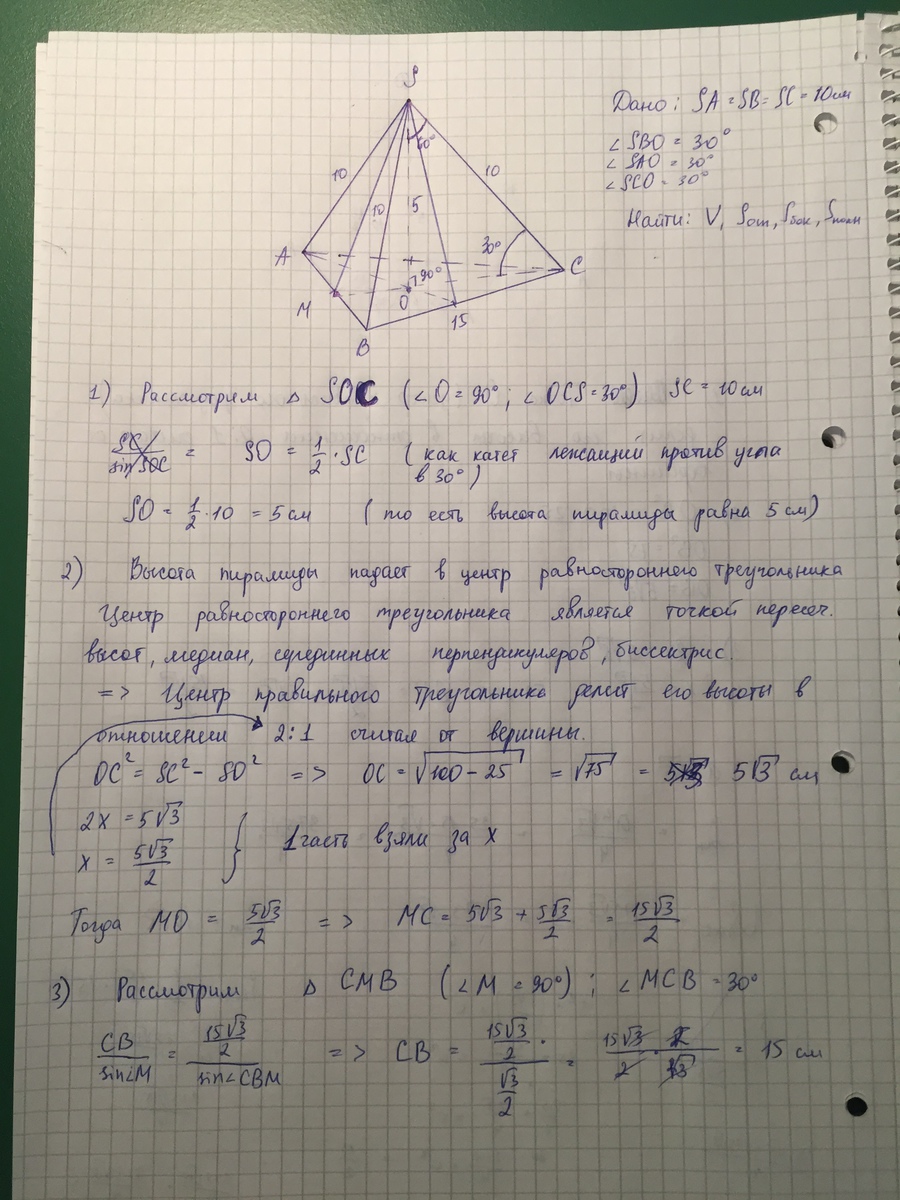 S
60°
10
10
5
10
30°
A
C
M
90°
O
15
B
Дано: SA = SB = SC = 10 см
∠SBO = 30°
∠SAO = 30°
∠SCO = 30°
Найти: V, Sосн, Sбок, Sполн
1) Рассмотрим △ SOC (∠O = 90°; ∠OCS = 30°) SC = 10 см
SC/sin SOC = SO = 1/2 · SC (как катет лежащий против угла
в 30°)
SO = 1/2 · 10 = 5 см (то есть высота пирамиды равна 5 см)
2) Высота пирамиды падает в центр равностороннего треугольника
Центр равностороннего треугольника является точкой пересеч.
высот, медиан, серединных перпендикуляров, биссектрис.
=> Центр правильного треугольника делит его высоты в
отношении 2:1 считая от вершины.
OC² = SC² - SO² => OC = √(100 - 25) = √75 = 5√3 см
2x = 5√3
x = 5√3/2 } 1 часть взяли за x
Тогда MO = 5√3/2 => MC = 5√3 + 5√3/2 = 15√3/2
3) Рассмотрим △ CMB (∠M = 90°); ∠MCB = 30°
CB/sin∠M = (15√3/2)/sin∠CBM => CB = (15√3/2)/(√3/2) = 15√3/2 · 2/√3 = 15 см